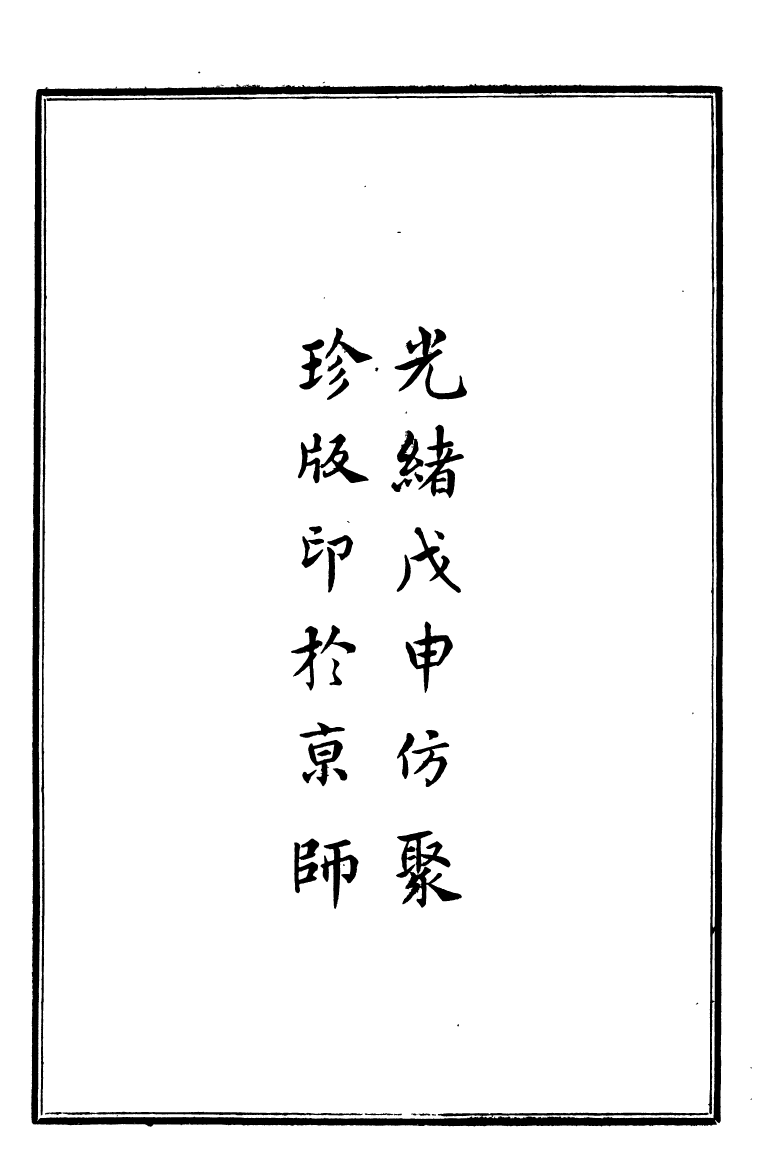 光緒戊申仿聚
珍版印於亰師